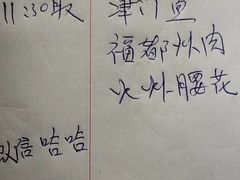 11:30取
津门鱼
福都炒肉
火炒腰花
微信哈哈